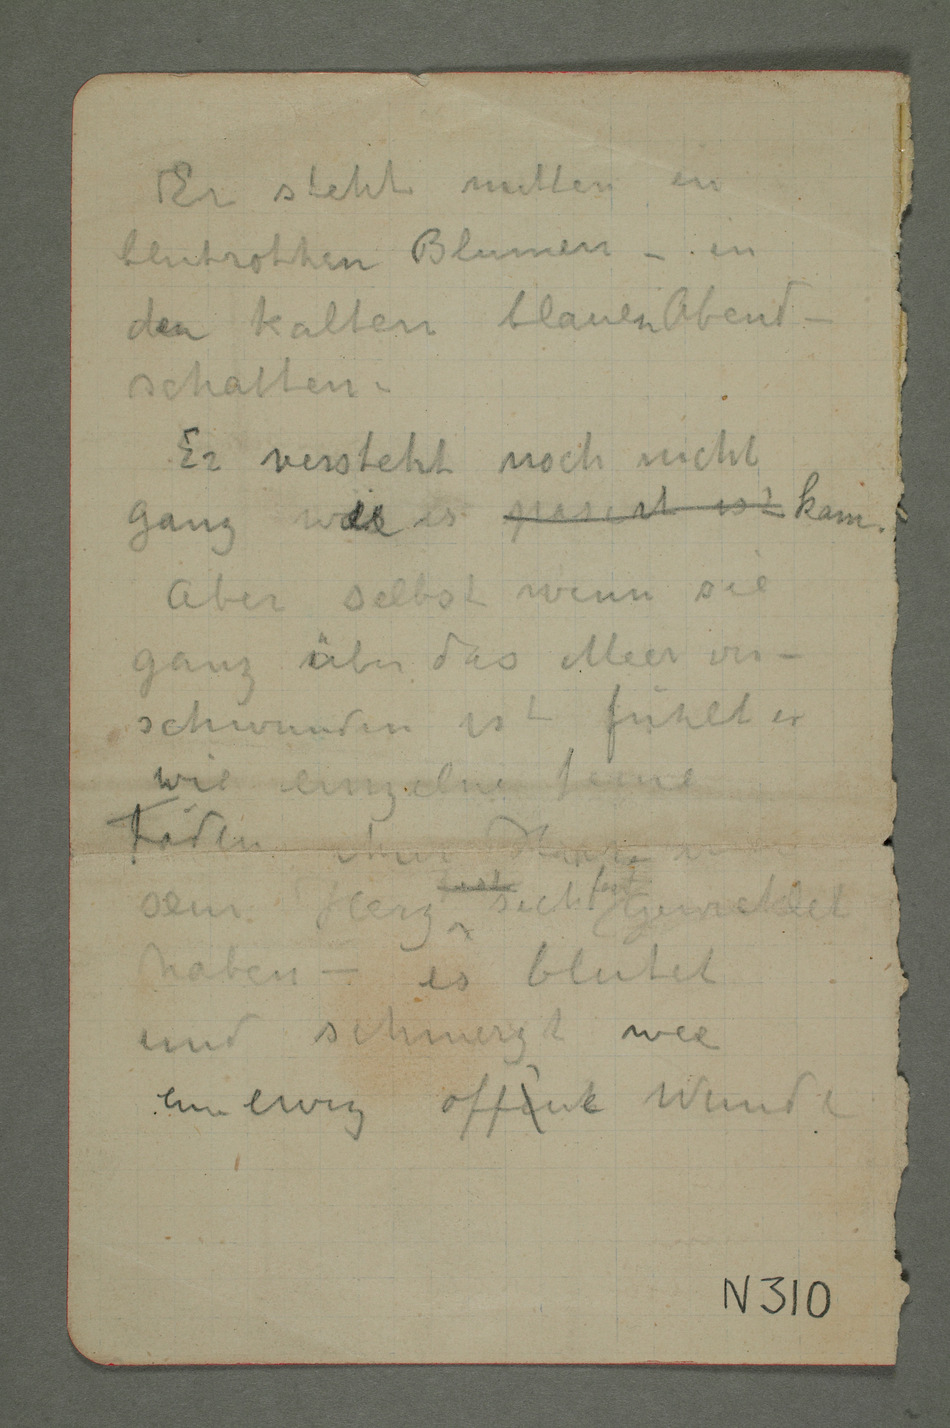 Er steht mitten in
blutrothen Blumen – in
den kalten blauen Abend–
schatten –
Er versteht noch nicht
ganz wie es pasirt ist kam.
Aber selbst wenn sie
ganz über das Meer ver–
schwunden ist fühlt er
wie einzelne feine
Fäden ihrer Haare
sein Herz sich fest gewickelt
haben – es blutet
und schmerzt wie
ein ewig offene Wunde
N310